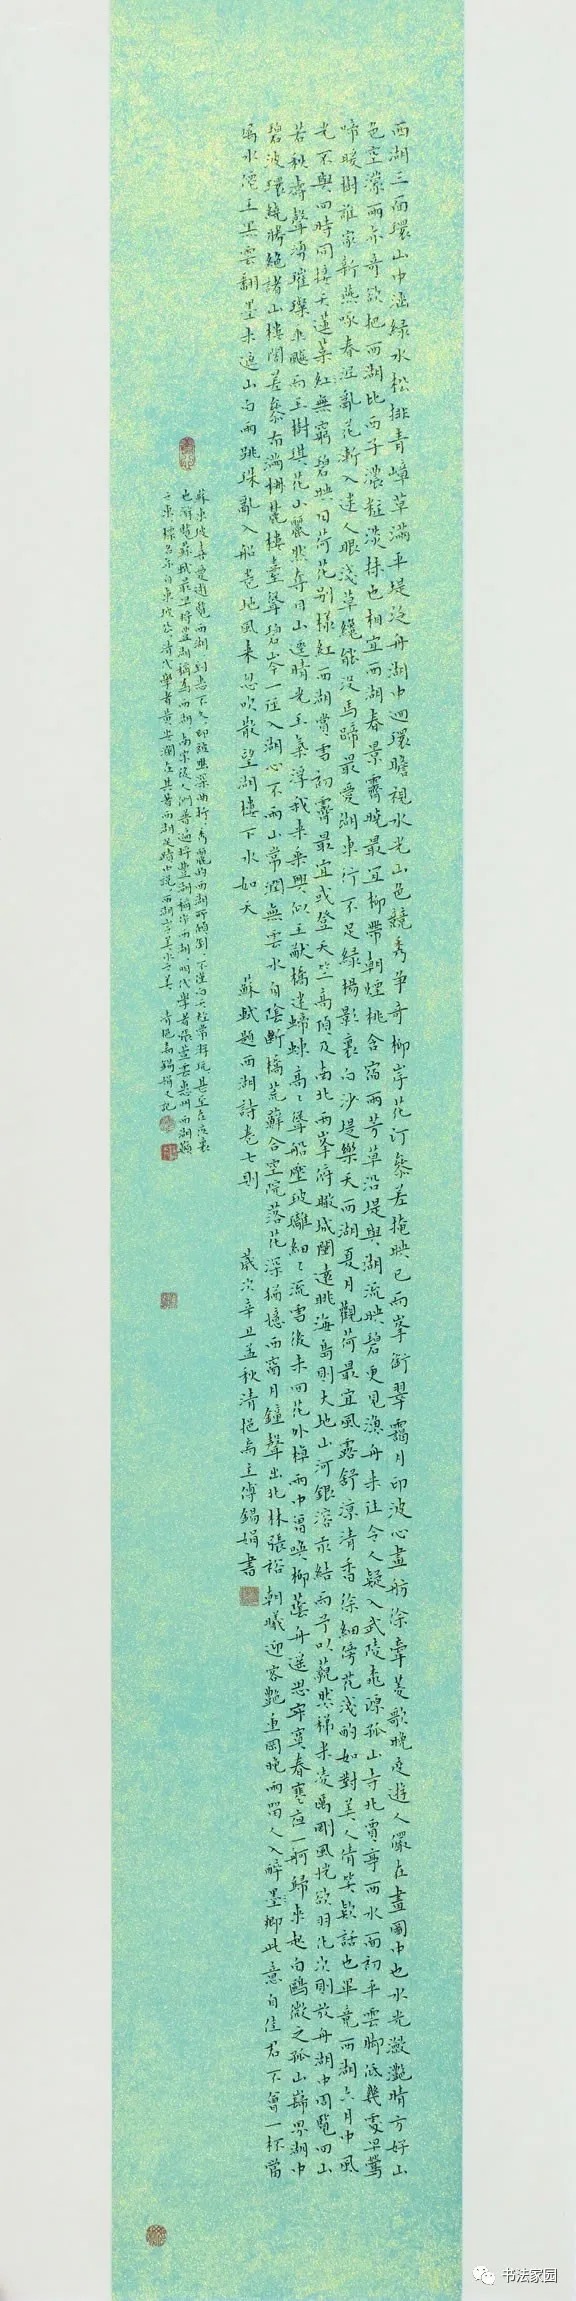 西湖三面環山中涵綠水松排青嶂草滿平堤泛舟湖中迴環瞻視水光山色競秀爭奇柳岸花汀參差掩映已而峯銜翠靄月印波心畫舫徐牽菱歌晚度遊人儼在畫圖中也水光瀲灧晴方好山
色空濛雨亦奇欲把西湖比西子濃粧淡抹也相宜西湖春景霽曉最宜柳帶朝煙桃含宿雨芳草沿堤與湖流映碧更見漁舟來往令人疑入武陵桃源孤山寺北賈亭西水面初平雲脚低幾處早鶯
啼暖樹誰家新燕啄春泥亂花漸入迷人眼淺草纔能沒馬蹄最愛湖東行不足綠楊影裏白沙堤樂天西湖夏月觀荷最宜風露舒涼清香徐細傍花淺酌如對美人倩笑款話也畢竟西湖六月中風
光不與四時同接天蓮葉紅無窮碧映日荷花別樣紅西湖賞雪初霽最宜或登天竺高頂及南北兩峯俯瞰城闉遠眺海島則大地山河銀溶汞結而予以藐然稊米凌厲剛風恍欲羽化次則放舟湖中周覽四山
若秋濤聲湧璀璨飛飈而玉樹琪花山麗然奪目山邊晴光玉氣浮我來乘興似王猷橋迷蝃蝀高〻聳船壓玻瓈細〻流雪後未回花外棹雨中曾喚柳蔭舟遥思寂寞春寒夜一舸歸來起白鷗微之孤山巋界湖中
碧波環繞勝絕諸山樓閣差參布滿椒麓樓臺聳碧岑一徑入湖心不雨山常潤無雲水自陰斷橋荒蘚合空院落花深猶憶西窗月鐘聲出北林張祐朝曦迎客艷重岡晚雨留人入醉墨鄉此意自佳君不會一杯當
屬水僊王黑雲翻墨未遮山白雨跳珠亂入船卷地風來忽吹散望湖樓下水如天 蘇軾題西湖詩卷七則 歲次辛丑孟秋清挹齋主傅錫娟書
蘇東坡喜愛遊覽西湖到惠不久即被幽深曲折秀麗的西湖所傾倒不僅白天經常遊玩甚至在夜裏
也遊覽蘇軾最早將豐湖稱為西湖南宋後人們普遍將豐湖稱作西湖明代學者張萱云惠州西湖嶺
之東標名亦自東坡公清代學者黃安瀾在其著西湖 中說西湖 清挹齋錫娟又記
书法家园